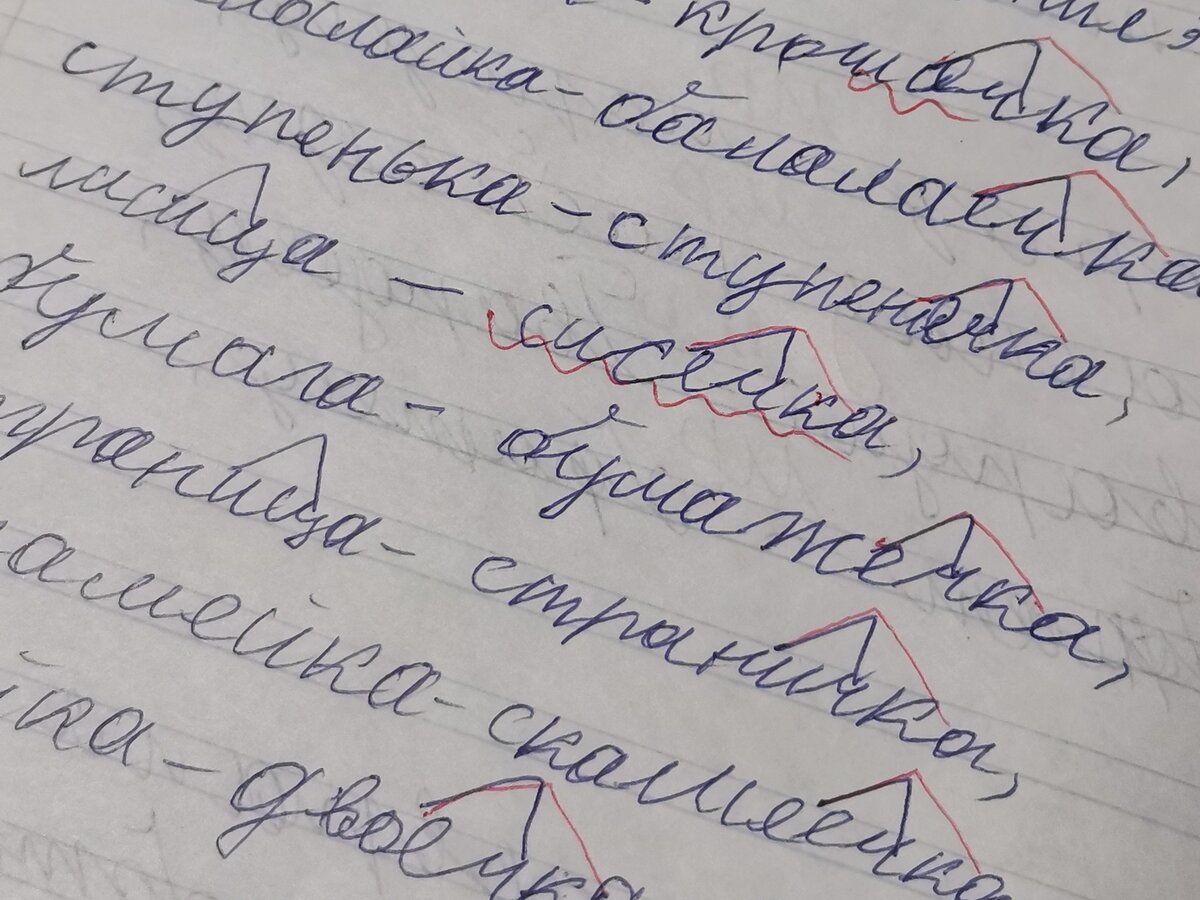 - крошечка,
лалайка - балалаечка
ступенька - ступенечка,
лисица - сисечка,
бумага - бумажечка,
траница - страничка,
амейка - скамеечка
йка - двоечка